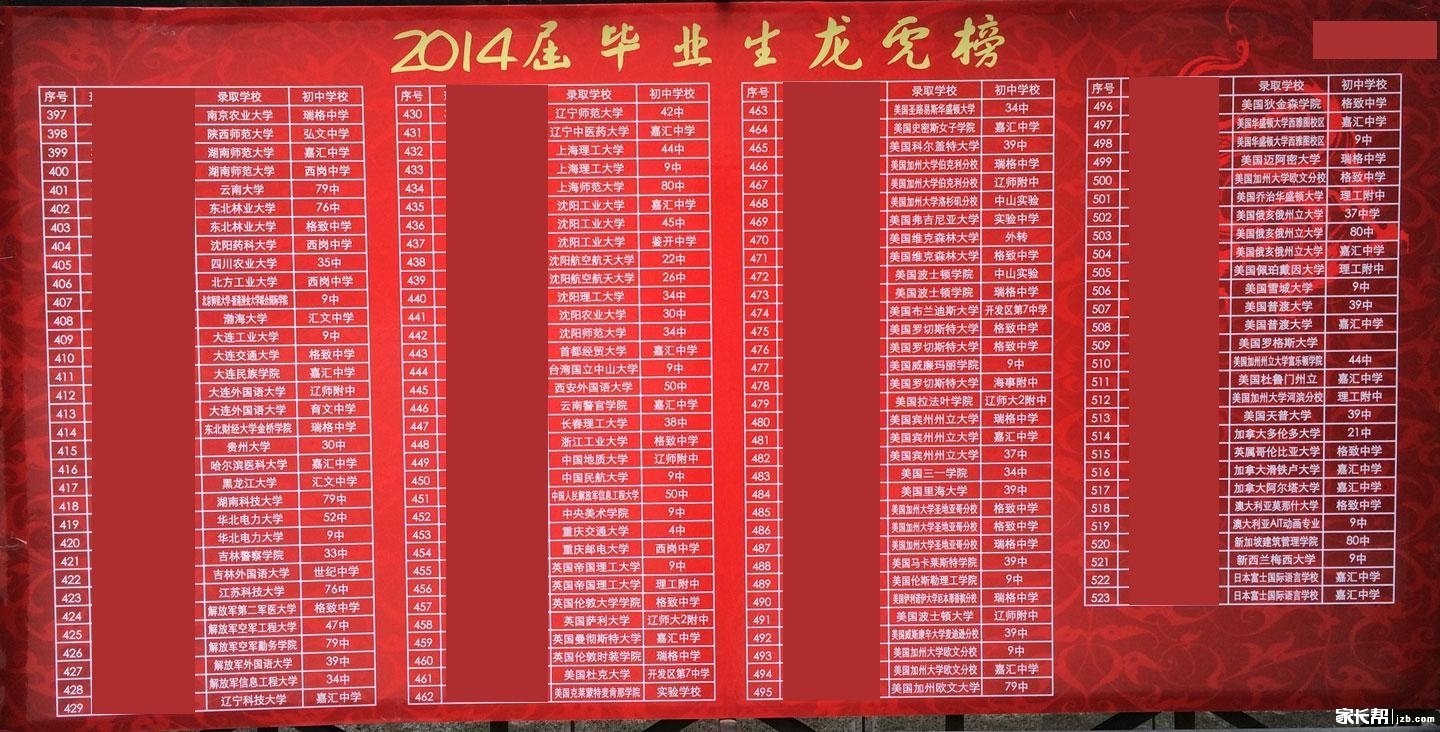 2014届毕业生龙虎榜
序号 录取学校 初中学校
397 南京农业大学 瑞格中学
398 陕西师范大学 弘文中学
399 湖南师范大学 嘉汇中学
400 湖南师范大学 西岗中学
401 云南大学 79中
402 东北林业大学 76中
403 东北林业大学 格致中学
404 沈阳药科大学 西岗中学
405 四川农业大学 35中
406 北方工业大学 西岗中学
407 北京师范大学-香港浸会大学联合国际学院 9中
408 渤海大学 汇文中学
409 大连工业大学 9中
410 大连交通大学 格致中学
411 大连民族学院 嘉汇中学
412 大连外国语大学 辽师附中
413 大连外国语大学 育文中学
414 东北财经大学金桥学院 瑞格中学
415 贵州大学 30中
416 哈尔滨医科大学 嘉汇中学
417 黑龙江大学 汇文中学
418 湖南科技大学 79中
419 华北电力大学 52中
420 华北电力大学 9中
421 吉林警察学院 33中
422 吉林外国语大学 世纪中学
423 江苏科技大学 76中
424 解放军第二军医大学 格致中学
425 解放军空军工程大学 47中
426 解放军空军勤务学院 79中
427 解放军外国语大学 39中
428 解放军信息工程大学 34中
429 辽宁科技大学 嘉汇中学
序号 录取学校 初中学校
430 辽宁师范大学 42中
431 辽宁中医药大学 嘉汇中学
432 上海理工大学 44中
433 上海理工大学 9中
434 上海师范大学 80中
435 沈阳工业大学 嘉汇中学
436 沈阳工业大学 45中
437 沈阳工业大学 鉴开中学
438 沈阳航空航天大学 22中
439 沈阳航空航天大学 26中
440 沈阳理工大学 34中
441 沈阳农业大学 30中
442 沈阳师范大学 34中
443 首都经贸大学 嘉汇中学
444 台湾国立中山大学 9中
445 西安外国语大学 50中
446 云南警官学院 嘉汇中学
447 长春理工大学 38中
448 浙江工业大学 格致中学
449 中国地质大学 辽师附中
450 中国民航大学 9中
451 中国人民解放军信息工程大学 50中
452 中央美术学院 9中
453 重庆交通大学 4中
454 重庆邮电大学 西岗中学
455 英国帝国理工大学 9中
456 英国帝国理工大学 理工附中
457 英国伦敦大学学院 格致中学
458 英国萨利大学 辽师大2附中
459 英国曼彻斯特大学 嘉汇中学
460 英国伦敦时装学院 瑞格中学
461 美国杜克大学 开发区第7中学
462 美国克莱蒙特麦肯那学院 实验学校
序号 录取学校 初中学校
463 美国圣路易斯华盛顿大学 34中
464 美国史密斯女子学院 嘉汇中学
465 美国科尔盖特大学 39中
466 美国加州大学伯克利分校 瑞格中学
467 美国加州大学伯克利分校 辽师附中
468 美国加州大学洛杉矶分校 中山实验
469 美国弗吉尼亚大学 实验中学
470 美国维克森林大学 外转
471 美国维克森林大学 格致中学
472 美国波士顿学院 中山实验
473 美国波士顿学院 瑞格中学
474 美国布兰迪斯大学 开发区第7中学
475 美国罗切斯特大学 格致中学
476 美国罗切斯特大学 格致中学
477 美国威廉玛丽学院 9中
478 美国罗切斯特大学 海事附中
479 美国拉法叶学院 辽师大2附中
480 美国宾州州立大学 瑞格中学
481 美国宾州州立大学 嘉汇中学
482 美国宾州州立大学 37中
483 美国三一学院 34中
484 美国里海大学 39中
485 美国加州大学圣地亚哥分校 格致中学
486 美国加州大学圣地亚哥分校 格致中学
487 美国加州大学圣地亚哥分校 瑞格中学
488 美国马卡莱斯特学院 39中
489 美国伦斯勒理工学院 9中
490 美国伊利诺伊大学厄本那香槟分校 瑞格中学
491 美国波士顿大学 辽师附中
492 美国威斯康辛大学麦迪逊分校 39中
493 美国加州大学欧文分校 9中
494 美国加州大学欧文分校 嘉汇中学
495 美国加州欧文大学 79中
序号 录取学校 初中学校
496 美国狄金森学院 格致中学
497 美国华盛顿大学西雅图校区 嘉汇中学
498 美国华盛顿大学西雅图校区 9中
499 美国迈阿密大学 瑞格中学
500 美国加州大学欧文分校 格致中学
501 美国乔治华盛顿大学 理工附中
502 美国俄亥俄州立大学 37中学
503 美国俄亥俄州立大学 80中
504 美国俄亥俄州立大学 嘉汇中学
505 美国佩珀戴因大学 理工附中
506 美国雪城大学 9中
507 美国普渡大学 39中
508 美国普渡大学 嘉汇中学
509 美国罗格斯大学
510 美国加州州立大学富乐顿学院 44中
511 美国杜鲁门州立 嘉汇中学
512 美国加州大学河滨分校 理工附中
513 美国天普大学 39中
514 加拿大多伦多大学 21中
515 英属哥伦比亚大学 格致中学
516 加拿大滑铁卢大学 嘉汇中学
517 加拿大阿尔塔大学 嘉汇中学
518 澳大利亚莫那什大学 格致中学
519 澳大利亚AIT动画专业 9中
520 新加坡建筑管理学院 80中
521 新西兰梅西大学 9中
522 日本富士国际语言学校 嘉汇中学
523 日本富士国际语言学校 嘉汇中学
家长帮 jzb.com